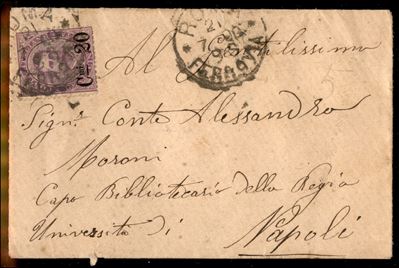 Cmi 20
ROMA
FERROVIA
Al Gentilissimo
Sign: Conte Alessandro
Moroni
Capo Bibliotecario della Regia
Università di
Napoli